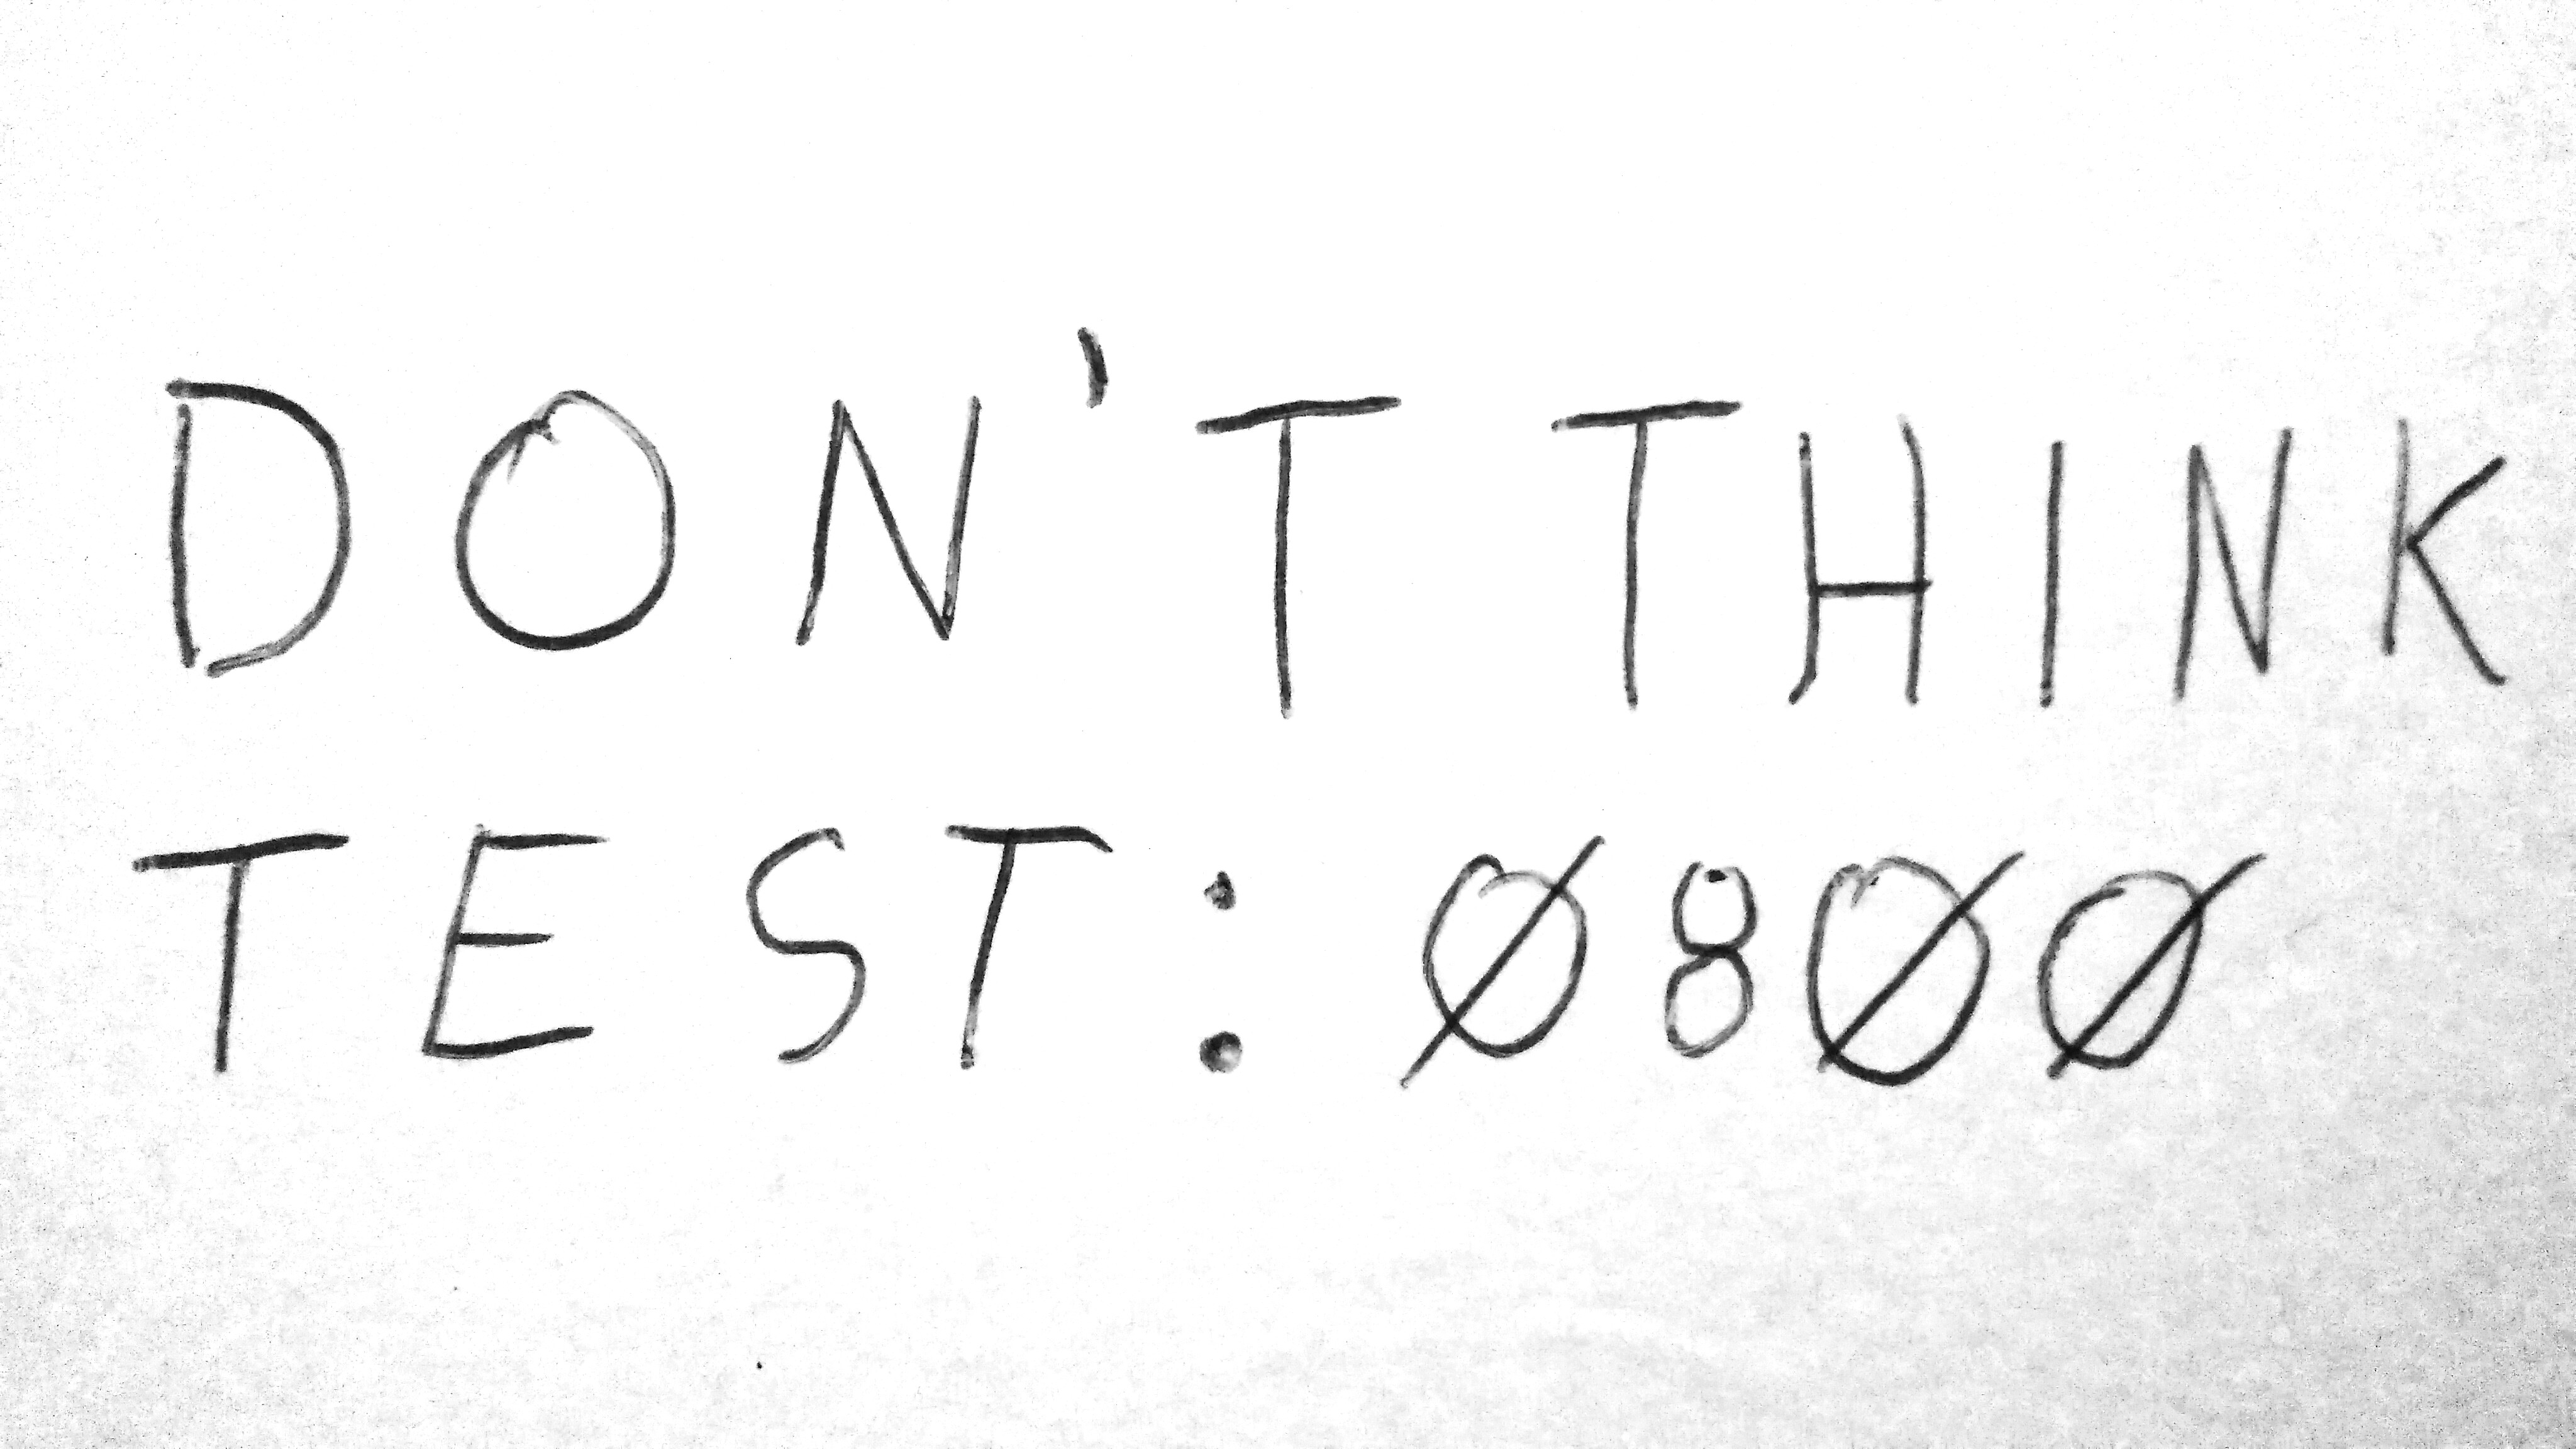 DON'T THINK
TEST: Ø8ØØ